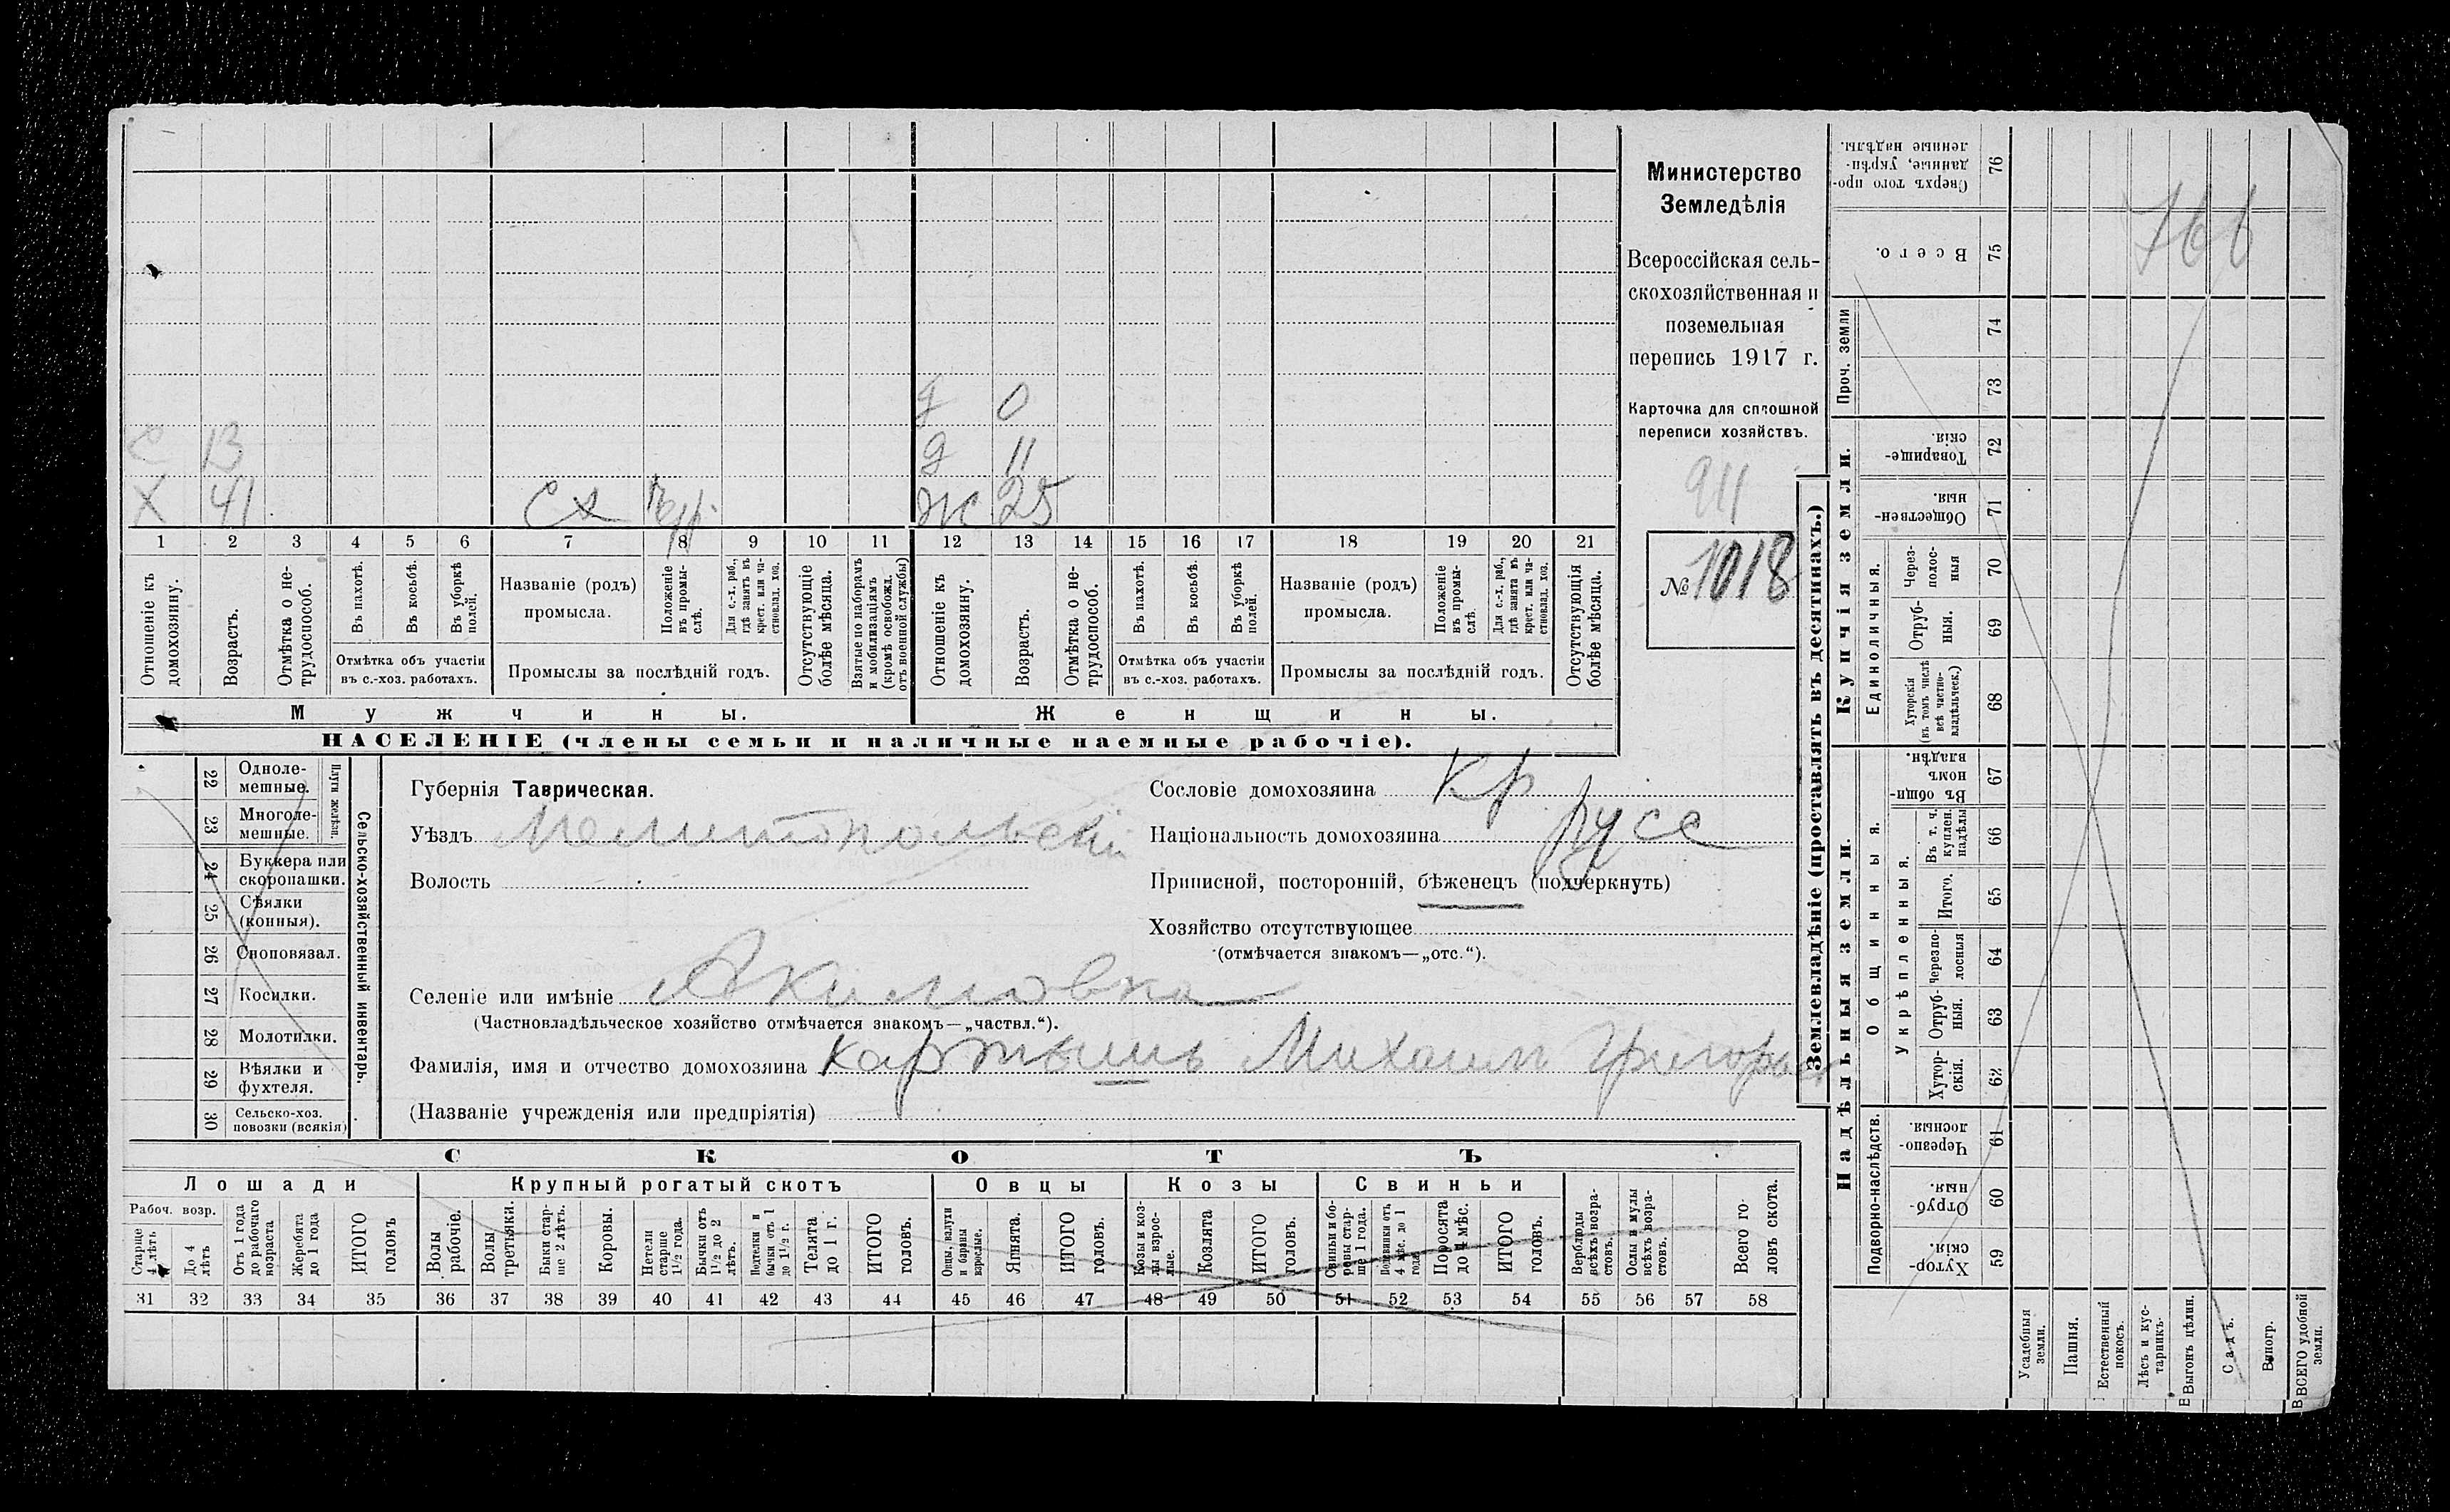 С 13
Х 41 СХ
д 0
д 11
ж 25
1 2 3 4 5 6 7 8 9 10 11 12 13 14 15 16 17 18 19 20 21
Отношеніе къ домохозяину.
Возрастъ.
Отмѣтка о нетрудоспособ.
Въ пахотѣ.
Въ косьбѣ.
Въ уборкѣ полей.
Отмѣтка объ участіи въ с.-хоз. работахъ.
Названіе (родъ) промысла.
Положеніе въ промыслѣ.
Для с.-х. раб., гдѣ занятъ въ крест. или частновлад. хоз.
Промыслы за послѣдній годъ.
Отсутствующіе болѣе мѣсяца.
Взятые по наборамъ и мобилизаціямъ (кромѣ освобожд. отъ военной службы)
Отношеніе къ домохозяину.
Возрастъ.
Отмѣтка о нетрудоспособ.
Въ пахотѣ.
Въ косьбѣ.
Въ уборкѣ полей.
Отмѣтка объ участіи въ с.-хоз. работахъ.
Названіе (родъ) промысла.
Положеніе въ промыслѣ.
Для с.-х. раб., гдѣ занята въ крест. или частновлад. хоз.
Промыслы за послѣдній годъ.
Отсутствующія болѣе мѣсяца.
Мужчины.
Женщины.
НАСЕЛЕНІЕ (члены семьи и наличные наемные рабочіе).
Министерство
Земледѣлія
Всероссійская сель-
скохозяйственная и
поземельная
перепись 1917 г.
Карточка для сплошной
переписи хозяйствъ.
911
№ 1018
22 Одноле-
мешные.
23 Многоле-
мешные.
Плуги желѣзн.
24 Буккера или
скоропашки.
25 Сѣялки
(конныя).
26 Сноповязал.
27 Косилки.
28 Молотилки.
29 Вѣялки и
фухтеля.
30 Сельско-хоз.
повозки (всякія)
Сельско-хозяйственный инвентарь.
Губернія Таврическая.
Уѣздъ Мелитопольскій
Волость
Сословіе домохозяина Кр
Національность домохозяина русс
Приписной, посторонній, бѣженецъ (подчеркнуть)
Хозяйство отсутствующее
(отмѣчается знакомъ—„отс.“).
Селеніе или имѣніе Акимовка
(Частновладѣльческое хозяйство отмѣчается знакомъ—„частвл.“).
Фамилія, имя и отчество домохозяина Картышъ Михаилъ
(Названіе учрежденія или предпріятія)
СКОТЪ
Лошади
Крупный рогатый скотъ
Овцы
Козы
Свиньи
Рабоч. возр.
Старше 4 лѣтъ
До 4 лѣтъ
Отъ 1 года до рабочаго возраста
Жеребята до 1 года
ИТОГО головъ
Волы рабочіе.
Волы третьяки.
Быки старше 2 лѣтъ.
Коровы.
Нетели старше 1½ года.
Бычки отъ 1½ до 2 лѣтъ.
Подтелки и бычки отъ 1 до 1½ г.
Телята до 1 г.
ИТОГО головъ.
Овцы, валухи и бараны взрослые.
Ягнята.
ИТОГО головъ.
Козы и козлы взрослые.
Козлята
ИТОГО головъ.
Свиньи и боровы старше 1 года.
Подсвинки отъ 4 мѣс. до 1 года
Поросята до 4 мѣс.
ИТОГО головъ.
Верблюды всѣхъ возрастовъ.
Ослы и мулы всѣхъ возрастовъ.
Всего головъ скота.
31 32 33 34 35 36 37 38 39 40 41 42 43 44 45 46 47 48 49 50 51 52 53 54 55 56 57 58
Землевладѣніе (проставлять въ десятинахъ.)
Надѣльныя земли.
Купчія земли.
Проч. земли
Подворно-наслѣдств.
Общинныя.
Укрѣпленныя.
Единоличныя.
Сверхъ того проданные, укрѣпленные надѣлы. 76
Всего. 75
74
73
Товарищескія 72
Общественныя. 71
Черезполосныя 70
Отрубныя. 69
Хуторскія (въ томъ числѣ всѣ частновладѣльческ.) 68
Въ общинномъ владѣн. 67
Въ т. ч. куплен. надѣлы 66
Итого. 65
Черезполосныя 64
Отрубныя. 63
Хуторскія. 62
Черезполосныя. 61
Отрубныя. 60
Хуторскія. 59
Усадебныя земли.
Пашня.
Естественный покосъ.
Лѣсъ и кустарникъ.
Выгонъ цѣлин.
Садъ.
Виногр.
ВСЕГО удобной земли.